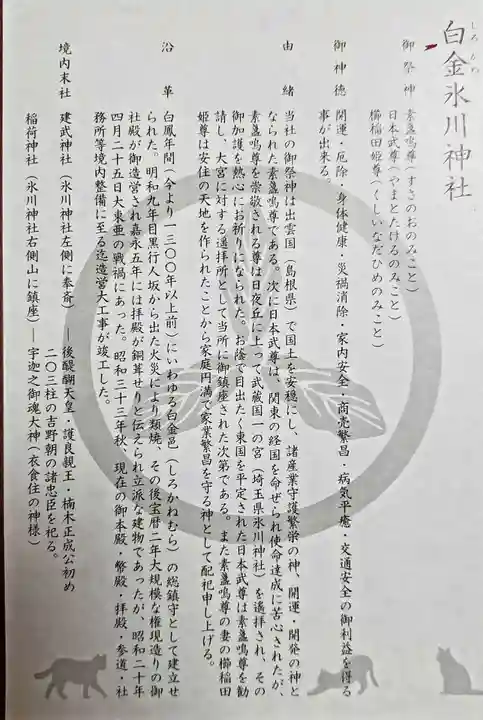 白金氷川神社
しろ かね
御祭神　素盞嗚尊（すさのおのみこと）
日本武尊（やまとたけるのみこと）
櫛稲田姫尊（くしいなだひめのみこと）
御神徳　開運・厄除・身体健康・災禍消除・家内安全・商売繁昌・病気平癒・交通安全の御利益を得る
事が出来る。
由緒　当社の御祭神は出雲国（島根県）で国土を安穏にし、諸産業守護繁栄の神、開運・開発の神と
なられた素盞嗚尊である。次に日本武尊は、関東の経国を命ぜられ使命達成に苦心されたが、
素盞嗚尊を崇敬される尊は日夜丘に上って武蔵国一の宮（埼玉県氷川神社）を遙拝され、その
御加護を熱心にお祈りになられた。お陰で目出たく東国を平定された日本武尊は素盞嗚尊を勧
請し、大宮に対する遥拝所として当所に御鎮座された次第である。また素盞嗚尊の妻の櫛稲田
姫尊は安住の天地を作られたことから家庭円満で家業繁昌を守る神として配祀申し上げる。
沿革　白鳳年間（今より一三〇〇年以上前）にいわゆる白金邑（しろかねむら）の総鎮守として建立せ
られた。明和九年目黒行人坂から出た火災により類焼、その後宝暦二年大規模な権現造りの御
社殿が御造営され嘉永五年には拝殿が銅葺せりと伝えられ立派な建物であったが、昭和二十年
四月二十五日大東亜の戦禍にあった。昭和三十三年秋、現在の御本殿・幣殿・拝殿・参道・社
務所等境内整備に至る迄造営大工事が竣工した。
境内末社　建武神社（氷川神社左側に奉斎）―後醍醐天皇・護良親王・楠木正成公初め
二〇三柱の吉野朝の諸忠臣を祀る。
稲荷神社（氷川神社右側山に鎮座）―宇迦之御魂大神（衣食住の神様）